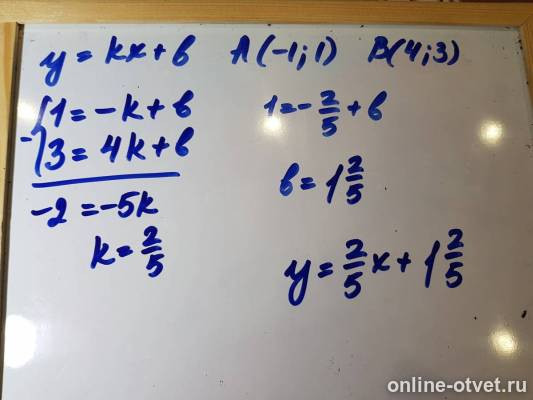 y = kx + b A(-1;1) B(4;3)
1 = -k + b
- 3 = 4k + b
-2 = -5k
k = 2/5
1 = -2/5 + b
b = 1 2/5
y = 2/5 x + 1 2/5
online-otvet.ru